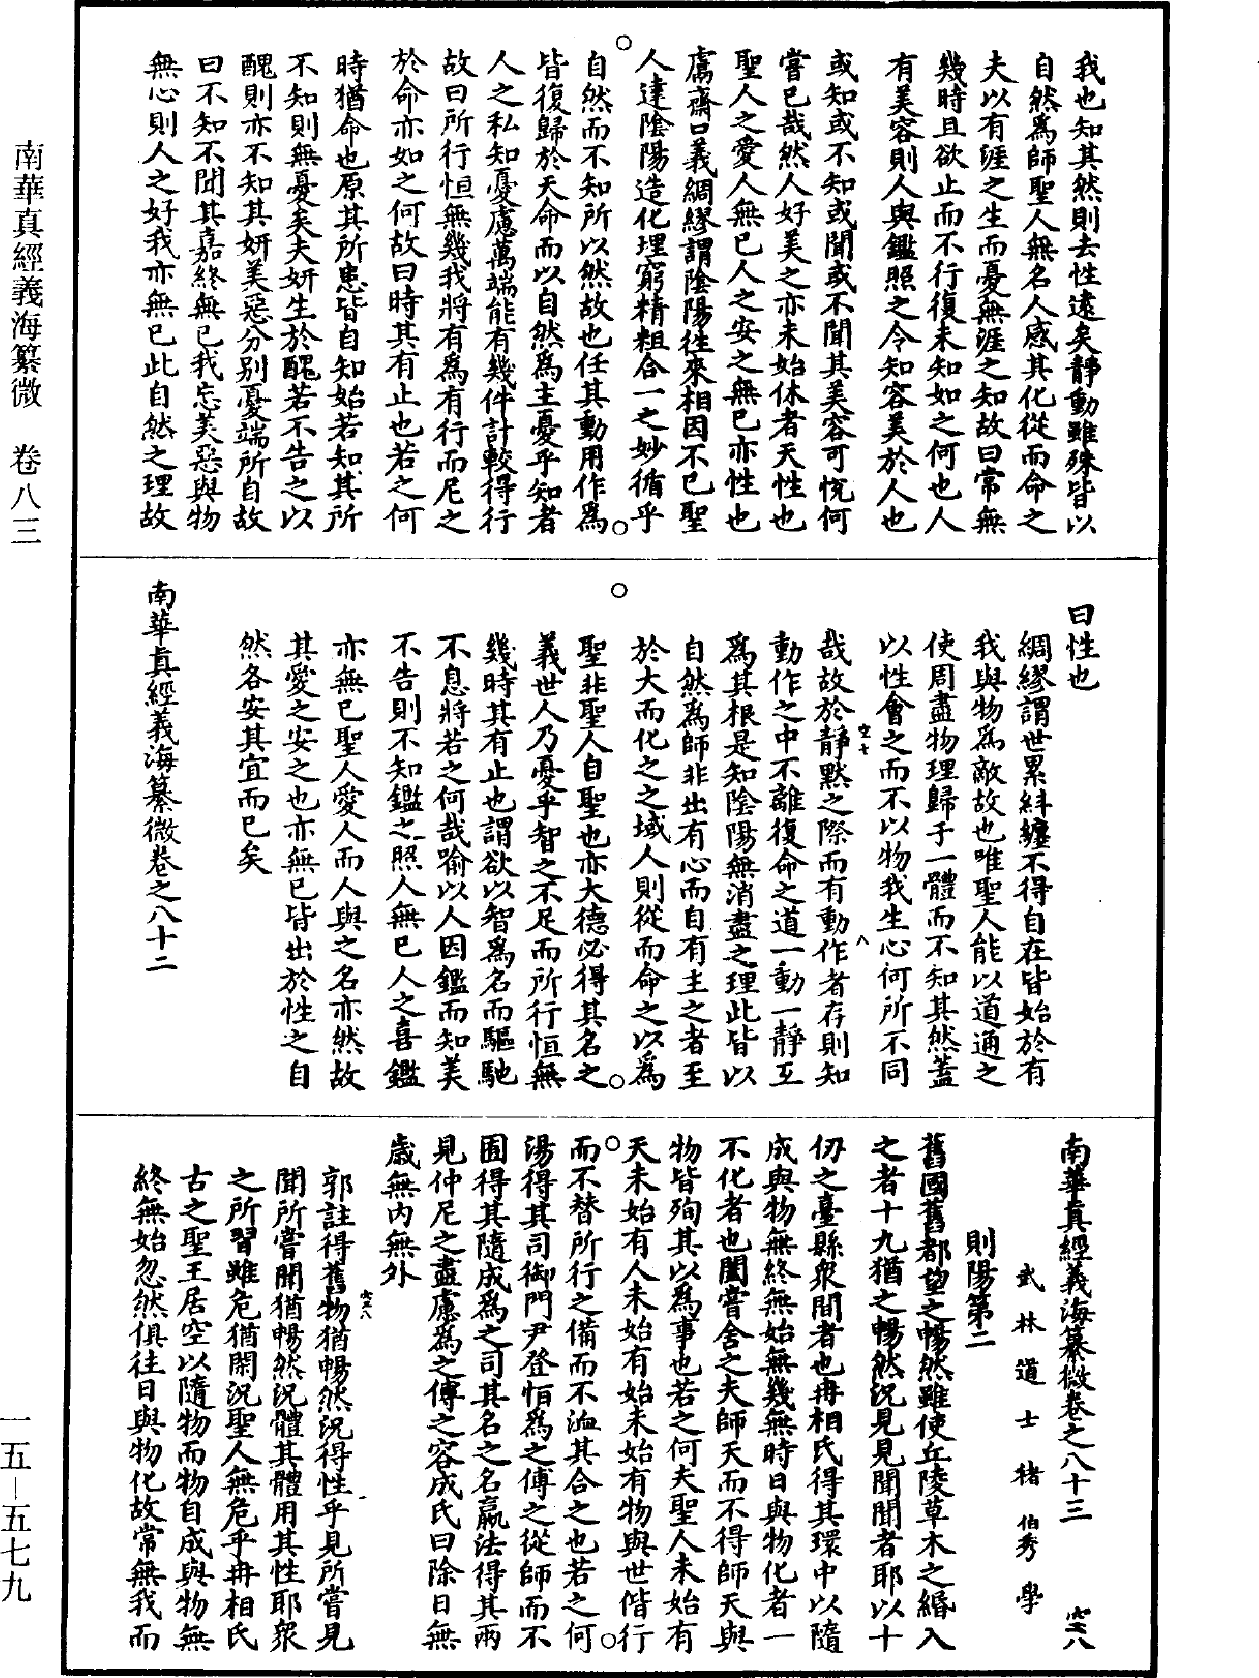 南華真經義海纂微　卷八三
一五—五七九
我也知其然則去性遠矣靜動雖殊皆以
自然為師聖人無名人感其化從而命之
夫以有涯之生而憂無涯之知故曰常無
幾時且欲止而不行復未知如之何也人
有美容則人與鑑照之令知容美於人也
或知或不知或聞或不聞其美容可悅何
嘗已哉然人好美之亦未始休者天性也
聖人之愛人無已人之安之無已亦性也
鬳齋口義綢繆謂陰陽往來相因不已聖
人達陰陽造化理窮精粗合一之妙循乎
自然而不知所以然故也任其動用作為
皆復歸於天命而以自然為主憂乎知者
人之私知憂慮萬端能有幾件計較得行
故曰所行恒無幾我將有為有行而尼之
於命亦如之何故曰時其有止也若之何
時猶命也原其所患皆自知始若知其所
不知則無憂矣夫妍生於醜若不告之以
醜則亦不知其妍美惡分別憂端所自故
曰不知不聞其嘉終無已我忘美惡與物
無心則人之好我亦無已此自然之理故
曰性也
綢繆謂世累糾纏不得自在皆始於有
我與物為敵故也唯聖人能以道通之
使周盡物理歸于一體而不知其然蓋
以性會之而不以物我生心何所不同
哉故於靜默之際而有動作者存則知
動作之中不離復命之道一動一靜互
為其根是知陰陽無消盡之理此皆以
自然為師非出有心而自有主之者至
於大而化之之域人則從而命之以為
聖非聖人自聖也亦大德必得其名之
義世人乃憂乎智之不足而所行恒無
幾時其有止也謂欲以智為名而驅馳
不息將若之何哉喻以人因鑑而知美
不告則不知鑑之照人無已人之喜鑑
亦無已聖人愛人而人與之名亦然故
其愛之安之也亦無已皆出於性之自
然各安其宜而已矣
南華真經義海纂微卷之八十二
南華真經義海纂微卷之八十三
武林道士褚伯秀學
則陽第二
舊國舊都望之暢然雖使丘陵草木之緡入
之者十九猶之暢然況見見聞聞者耶以十
仞之臺縣眾間者也冉相氏得其環中以隨
成與物無終無始無幾無時日與物化者一
不化者也闔嘗舍之夫師天而不得師天與
物皆殉其以為事也若之何夫聖人未始有
天未始有人未始有始未始有物與世偕行
而不替所行之備而不洫其合之也若之何
湯得其司御門尹登恒為之傅之從師而不
囿得其隨成為之司其名之名嬴法得其兩
見仲尼之盡慮為之傅之容成氏曰除日無
歲無內無外
郭註得舊物猶暢然況得性乎見所嘗見
聞所嘗聞猶暢然況體其體用其性耶眾
之所習雖危猶閑況聖人無危乎冉相氏
古之聖王居空以隨物而物自成與物無
終無始忽然俱往日與物化故常無我而